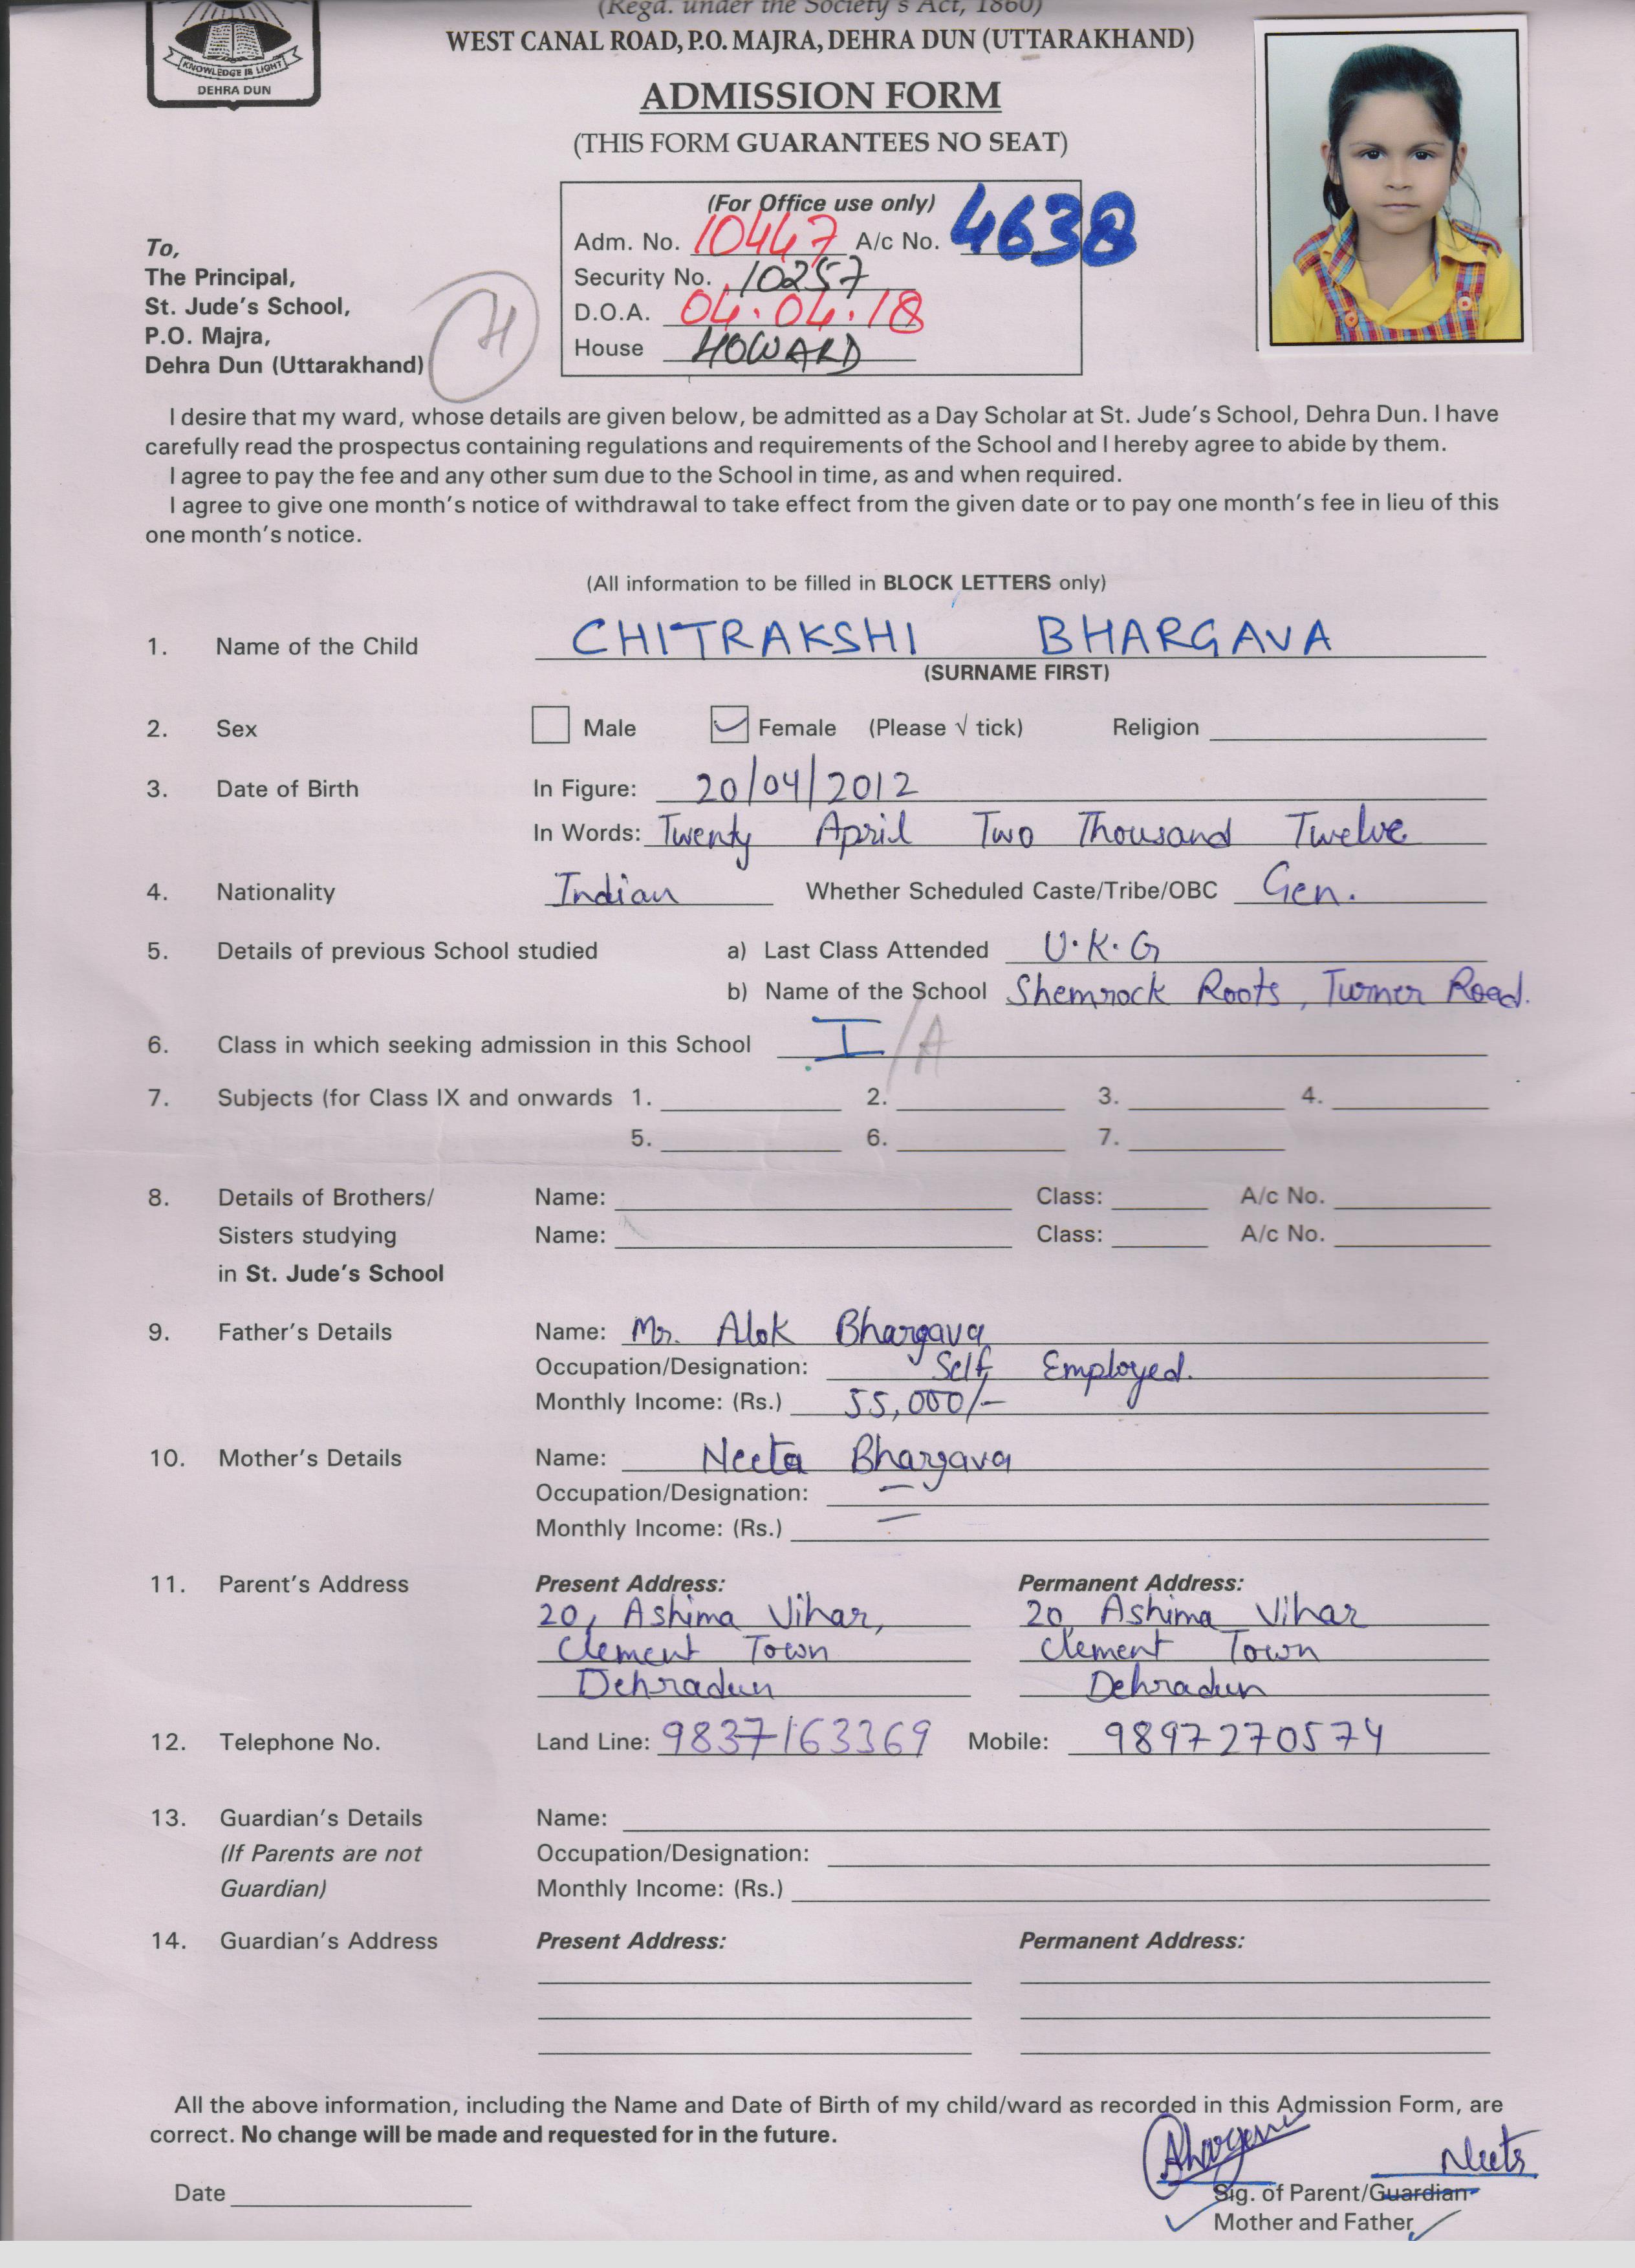 (Regd. under the Society's Act, 1860)
WEST CANAL ROAD, P.O. MAJRA, DEHRA DUN (UTTARAKHAND)
KNOWLEDGE IS LIGHT
DEHRA DUN
ADMISSION FORM
(THIS FORM GUARANTEES NO SEAT)
(For Office use only)
Adm. No. 10447 A/c No. 4638
Security No. 10257
D.O.A. 04.04.18
House HOWARD
To,
The Principal,
St. Jude's School,
P.O. Majra,
Dehra Dun (Uttarakhand)
H
I desire that my ward, whose details are given below, be admitted as a Day Scholar at St. Jude's School, Dehra Dun. I have
carefully read the prospectus containing regulations and requirements of the School and I hereby agree to abide by them.
I agree to pay the fee and any other sum due to the School in time, as and when required.
I agree to give one month's notice of withdrawal to take effect from the given date or to pay one month's fee in lieu of this
one month's notice.
(All information to be filled in BLOCK LETTERS only)
1. Name of the Child CHITRAKSHI BHARGAVA
(SURNAME FIRST)
2. Sex Male Female (Please √ tick) Religion
3. Date of Birth In Figure: 20/04/2012
In Words: Twenty April Two Thousand Twelve
4. Nationality Indian Whether Scheduled Caste/Tribe/OBC Gen.
5. Details of previous School studied a) Last Class Attended U.K.G
b) Name of the School Shemrock Roots, Turner Road.
6. Class in which seeking admission in this School I/A
7. Subjects (for Class IX and onwards 1. 2. 3. 4.
5. 6. 7.
8. Details of Brothers/ Name: Class: A/c No.
Sisters studying Name: Class: A/c No.
in St. Jude's School
9. Father's Details Name: Mr. Alok Bhargava
Occupation/Designation: Self Employed.
Monthly Income: (Rs.) 55,000/-
10. Mother's Details Name: Neeta Bhargava
Occupation/Designation: —
Monthly Income: (Rs.) —
11. Parent's Address Present Address: Permanent Address:
20, Ashima Vihar, 20, Ashima Vihar
Clement Town Clement Town
Dehradun Dehradun
12. Telephone No. Land Line: 9837163369 Mobile: 9897270574
13. Guardian's Details Name:
(If Parents are not Occupation/Designation:
Guardian) Monthly Income: (Rs.)
14. Guardian's Address Present Address: Permanent Address:
All the above information, including the Name and Date of Birth of my child/ward as recorded in this Admission Form, are
correct. No change will be made and requested for in the future.
Bhargava Neeta
Date Sig. of Parent/Guardian
Mother and Father